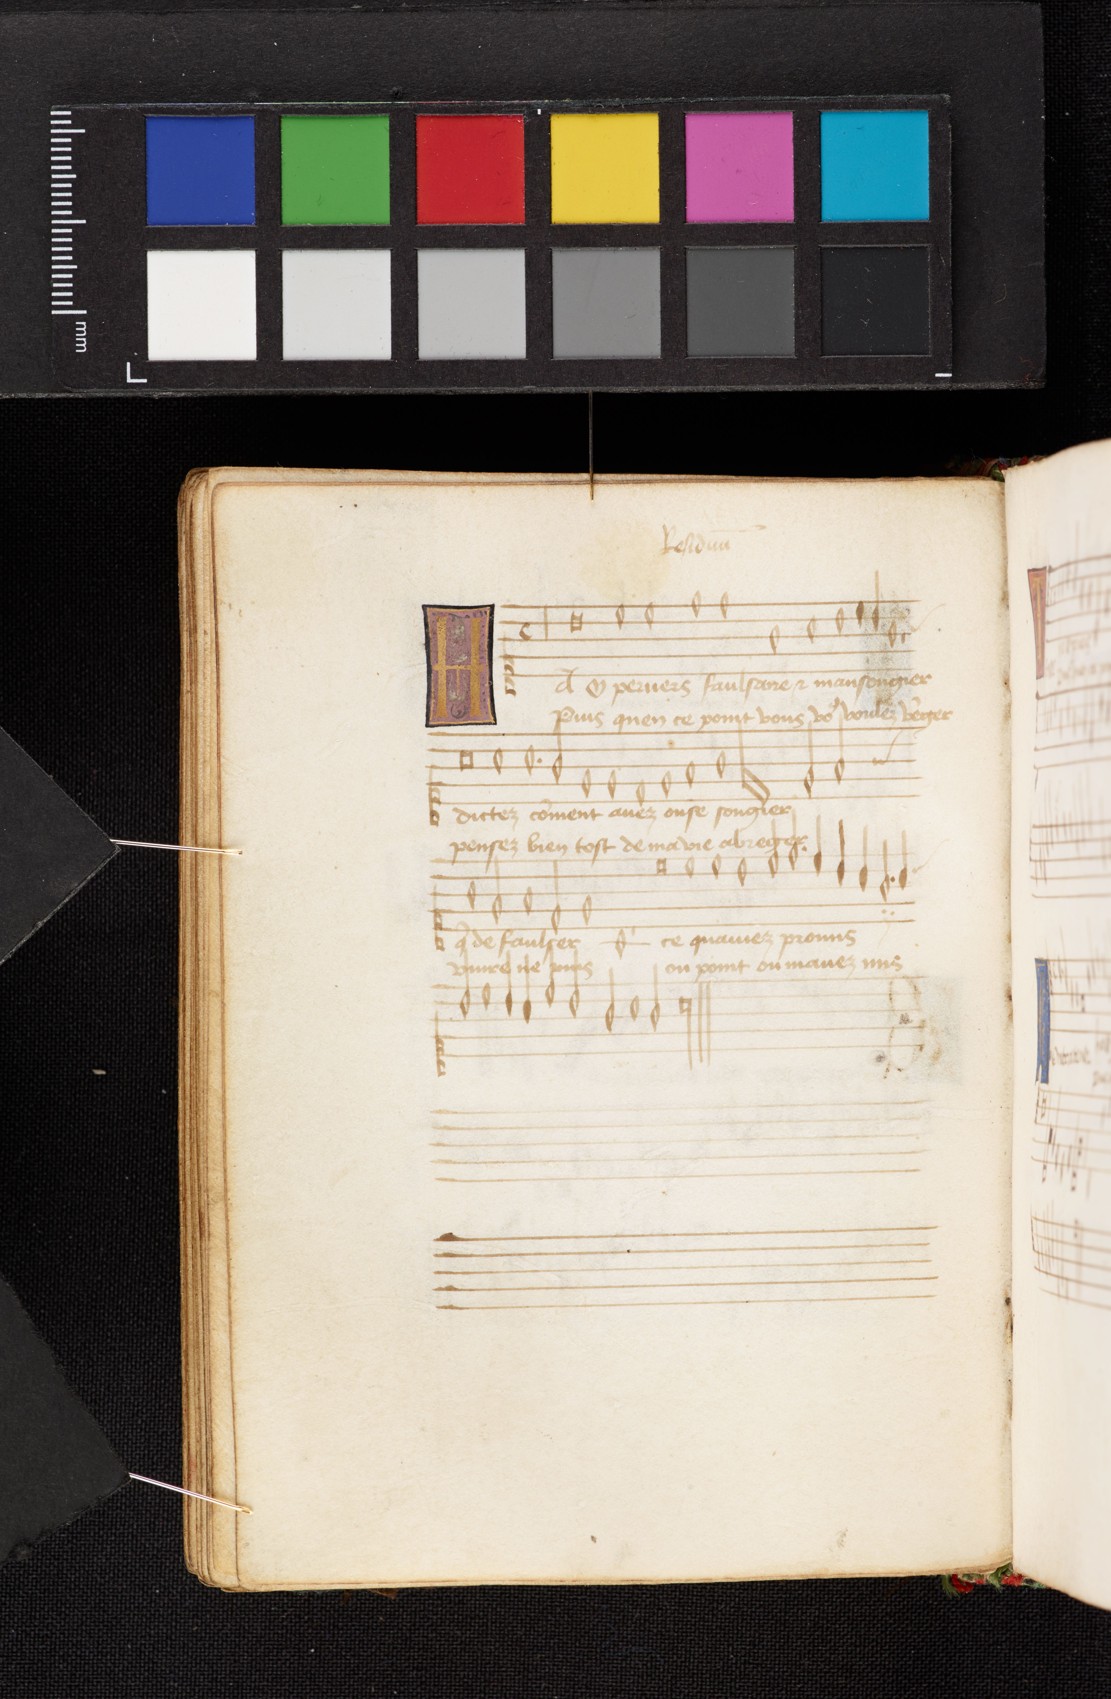 mm
Residuũ
H
A O peruers faulsaire ⁊ mansongier
Puis quen ce point vous voulez vẽger
dictez cõment auez ouse songier
pensez bien tost de ma vie abreger
de faulser ce quauiez promis
viure ne puis ou point ou mauez mis